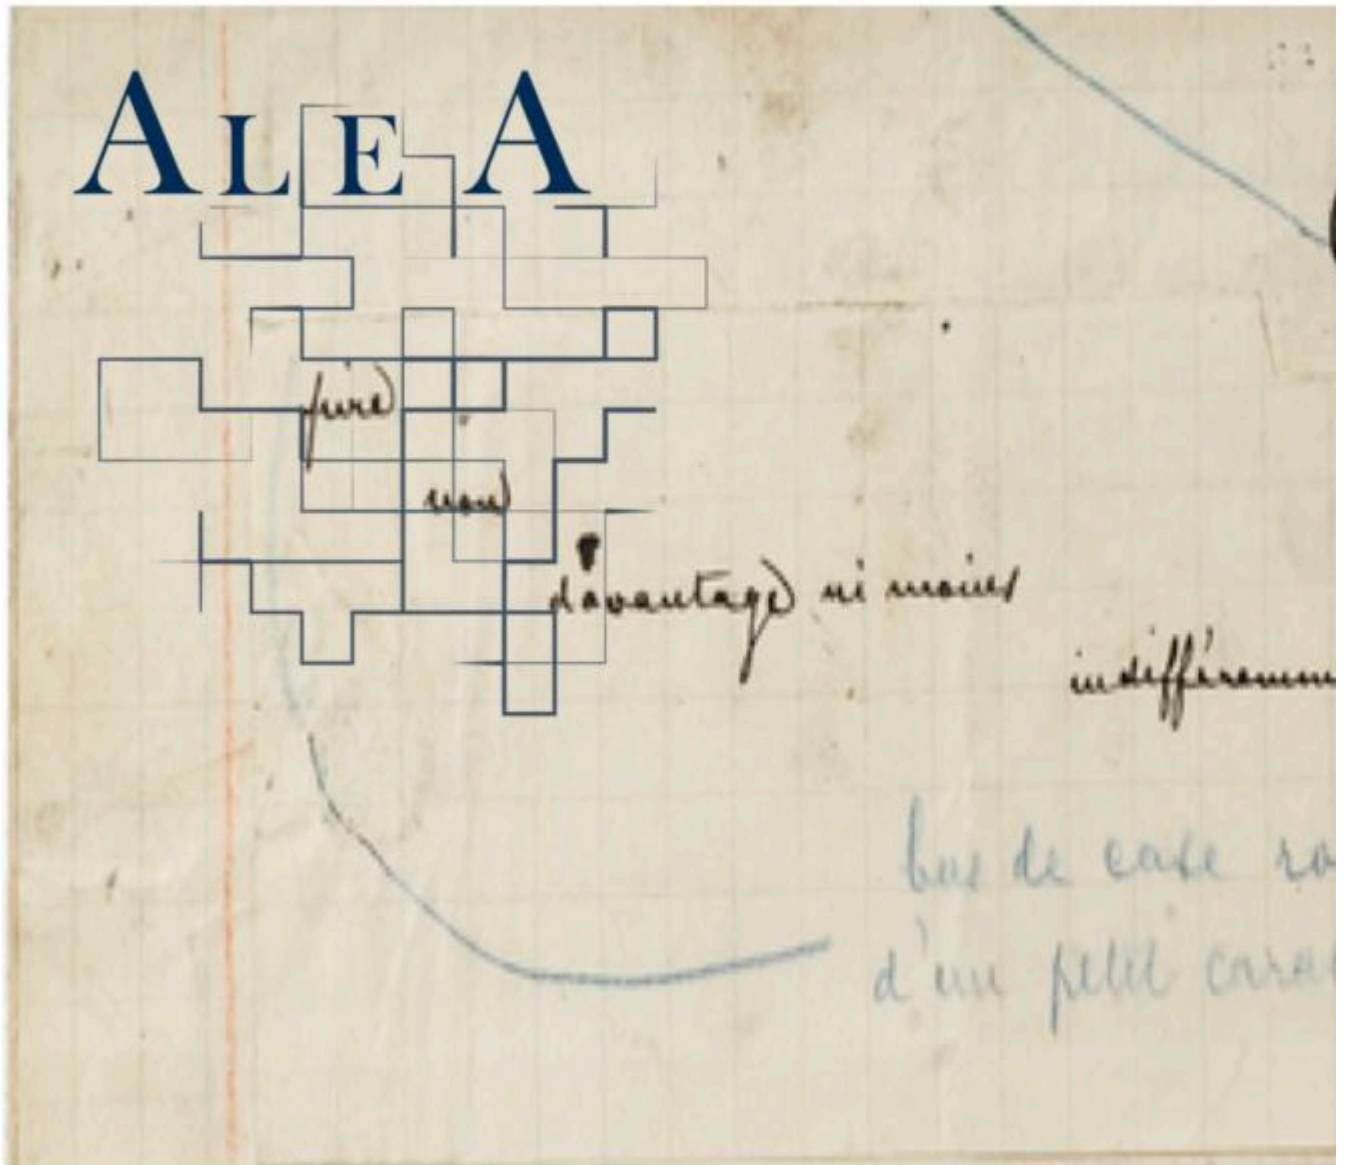 ALEA
pire
non
davantage ni moins
indifféremm
bas de case ro
d'un petit carac